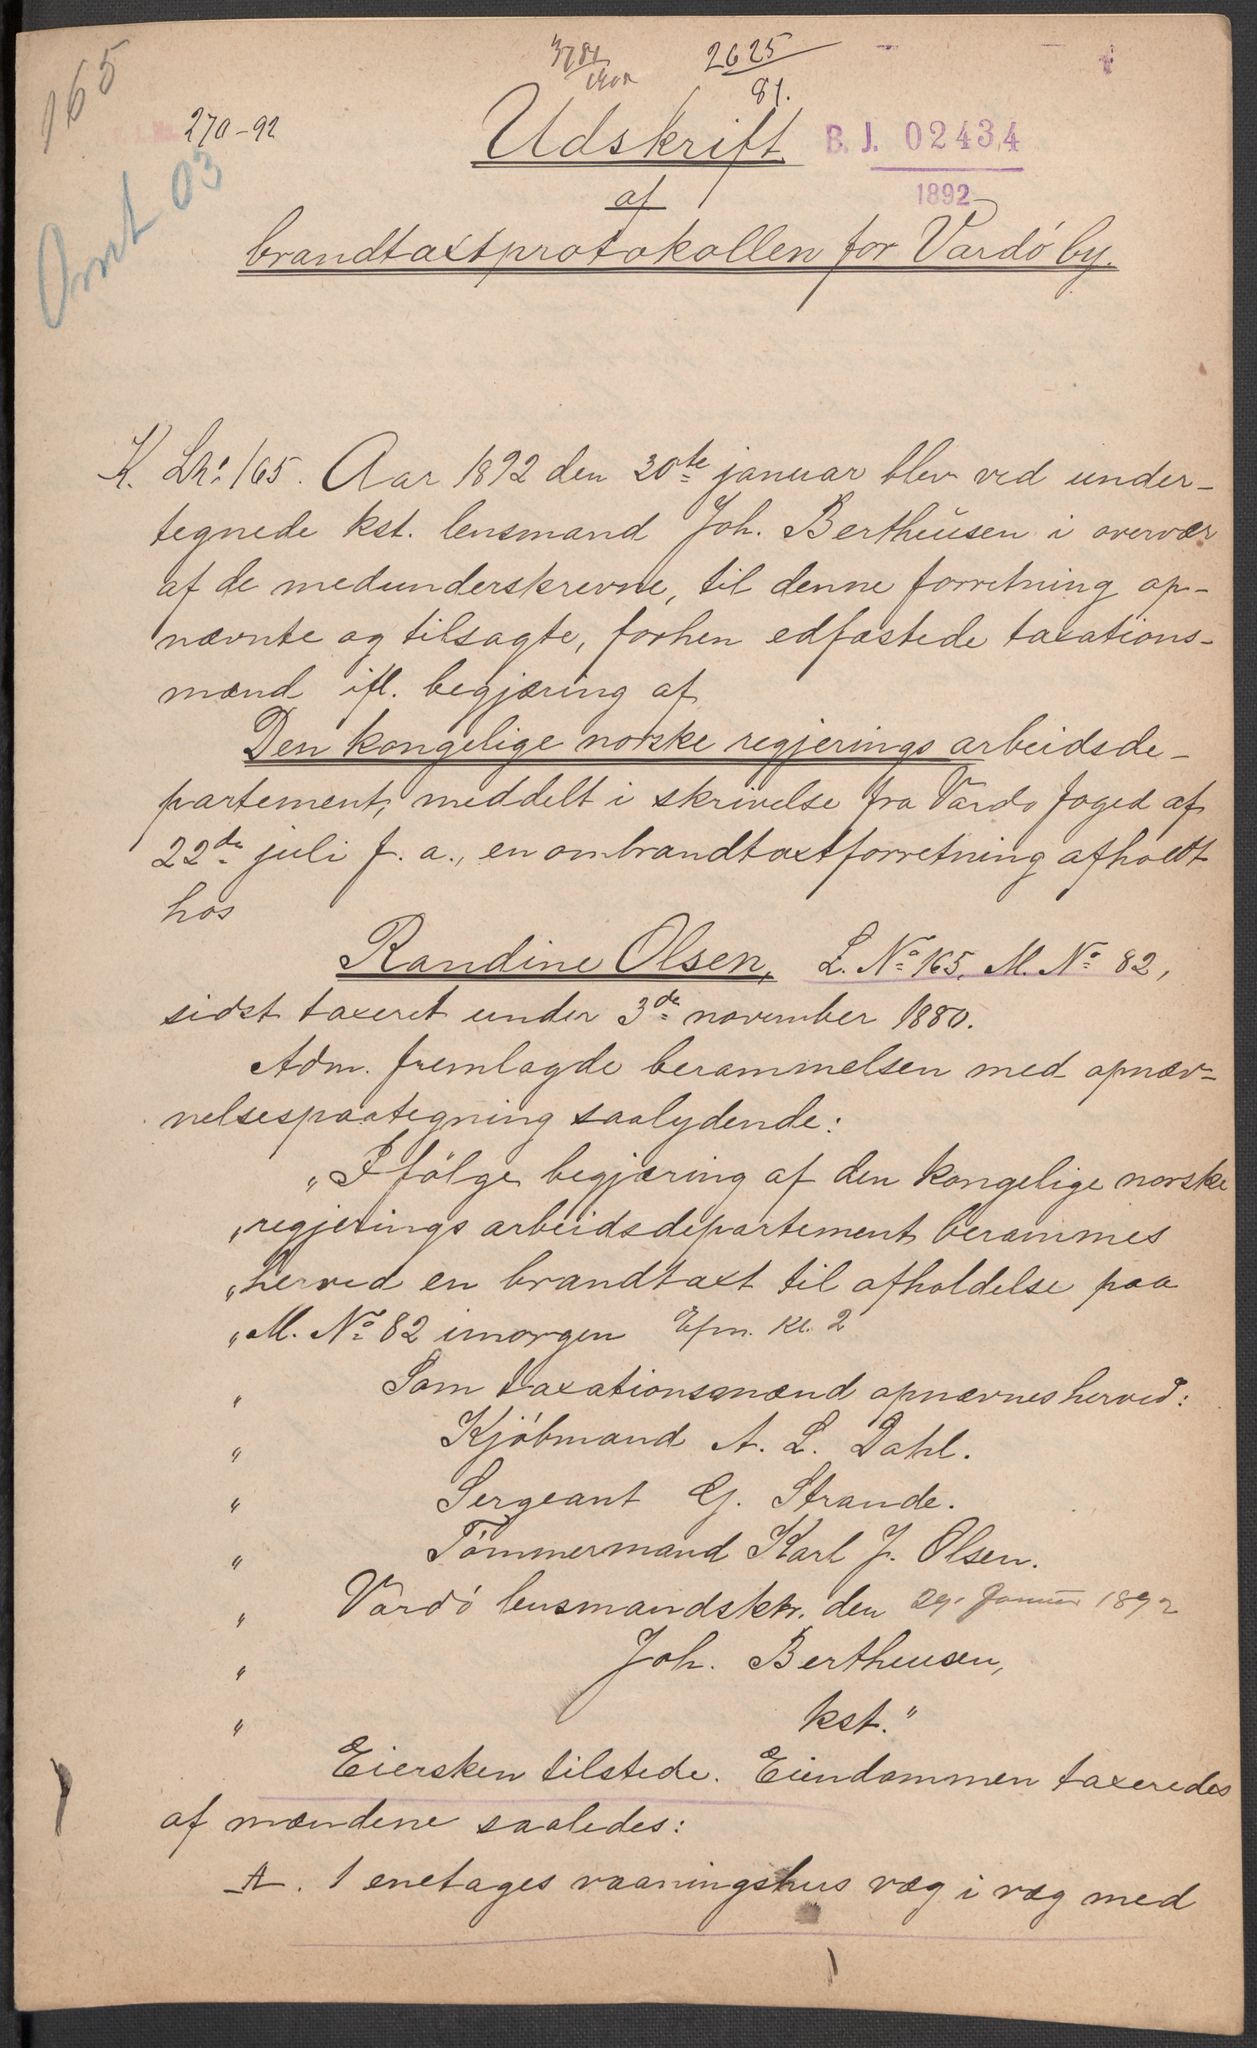 165
2625
81.
270-92
Udskrift
B. J. 02434
1892
af
Amt 03
brandtaxtprotokollen for Vardö by.
K. LNo 165. Aar 1892 den 30te januar blev ved under-
tegnede kst. lensmand Joh. Bertheusen i overvær
af de medunderskrevne, til denne forretning op-
nævnte og tilsagte, forhen edfæstede taxations-
mænd ifl. begjæring af
Den kongelige norske regjerings arbeidsde-
partement, meddelt i skrivelse fra Vardö foged af
22de juli f. a., en ombrandtaxtforretning afholdt
hos
Randine Olsen, L. No 165, M. No 82,
sidst taxeret under 3de november 1880.
Adm. fremlagde berammelsen med opnæv-
nelsespaategning saalydende:
"Ifölge begjæring af den kongelige norske
"regjerings arbeidsdepartement berammes
"herved en brandtaxt til afholdelse paa
"M. No 82 imorgen Efm. Kl. 2
" Som taxationsmænd opnævnes herved:
" Kjöbmand A. L. Dahl.
" Sergeant G. Strande.
" Tömmermand Karl J. Olsen.
" Vardö lensmandsktr. den 29. Januar 1892
" Joh. Bertheusen,
" kst."
Eiersken tilstede. Eiendommen taxeredes
af mændene saaledes:
A. 1 enetages vaaningshus væg i væg med